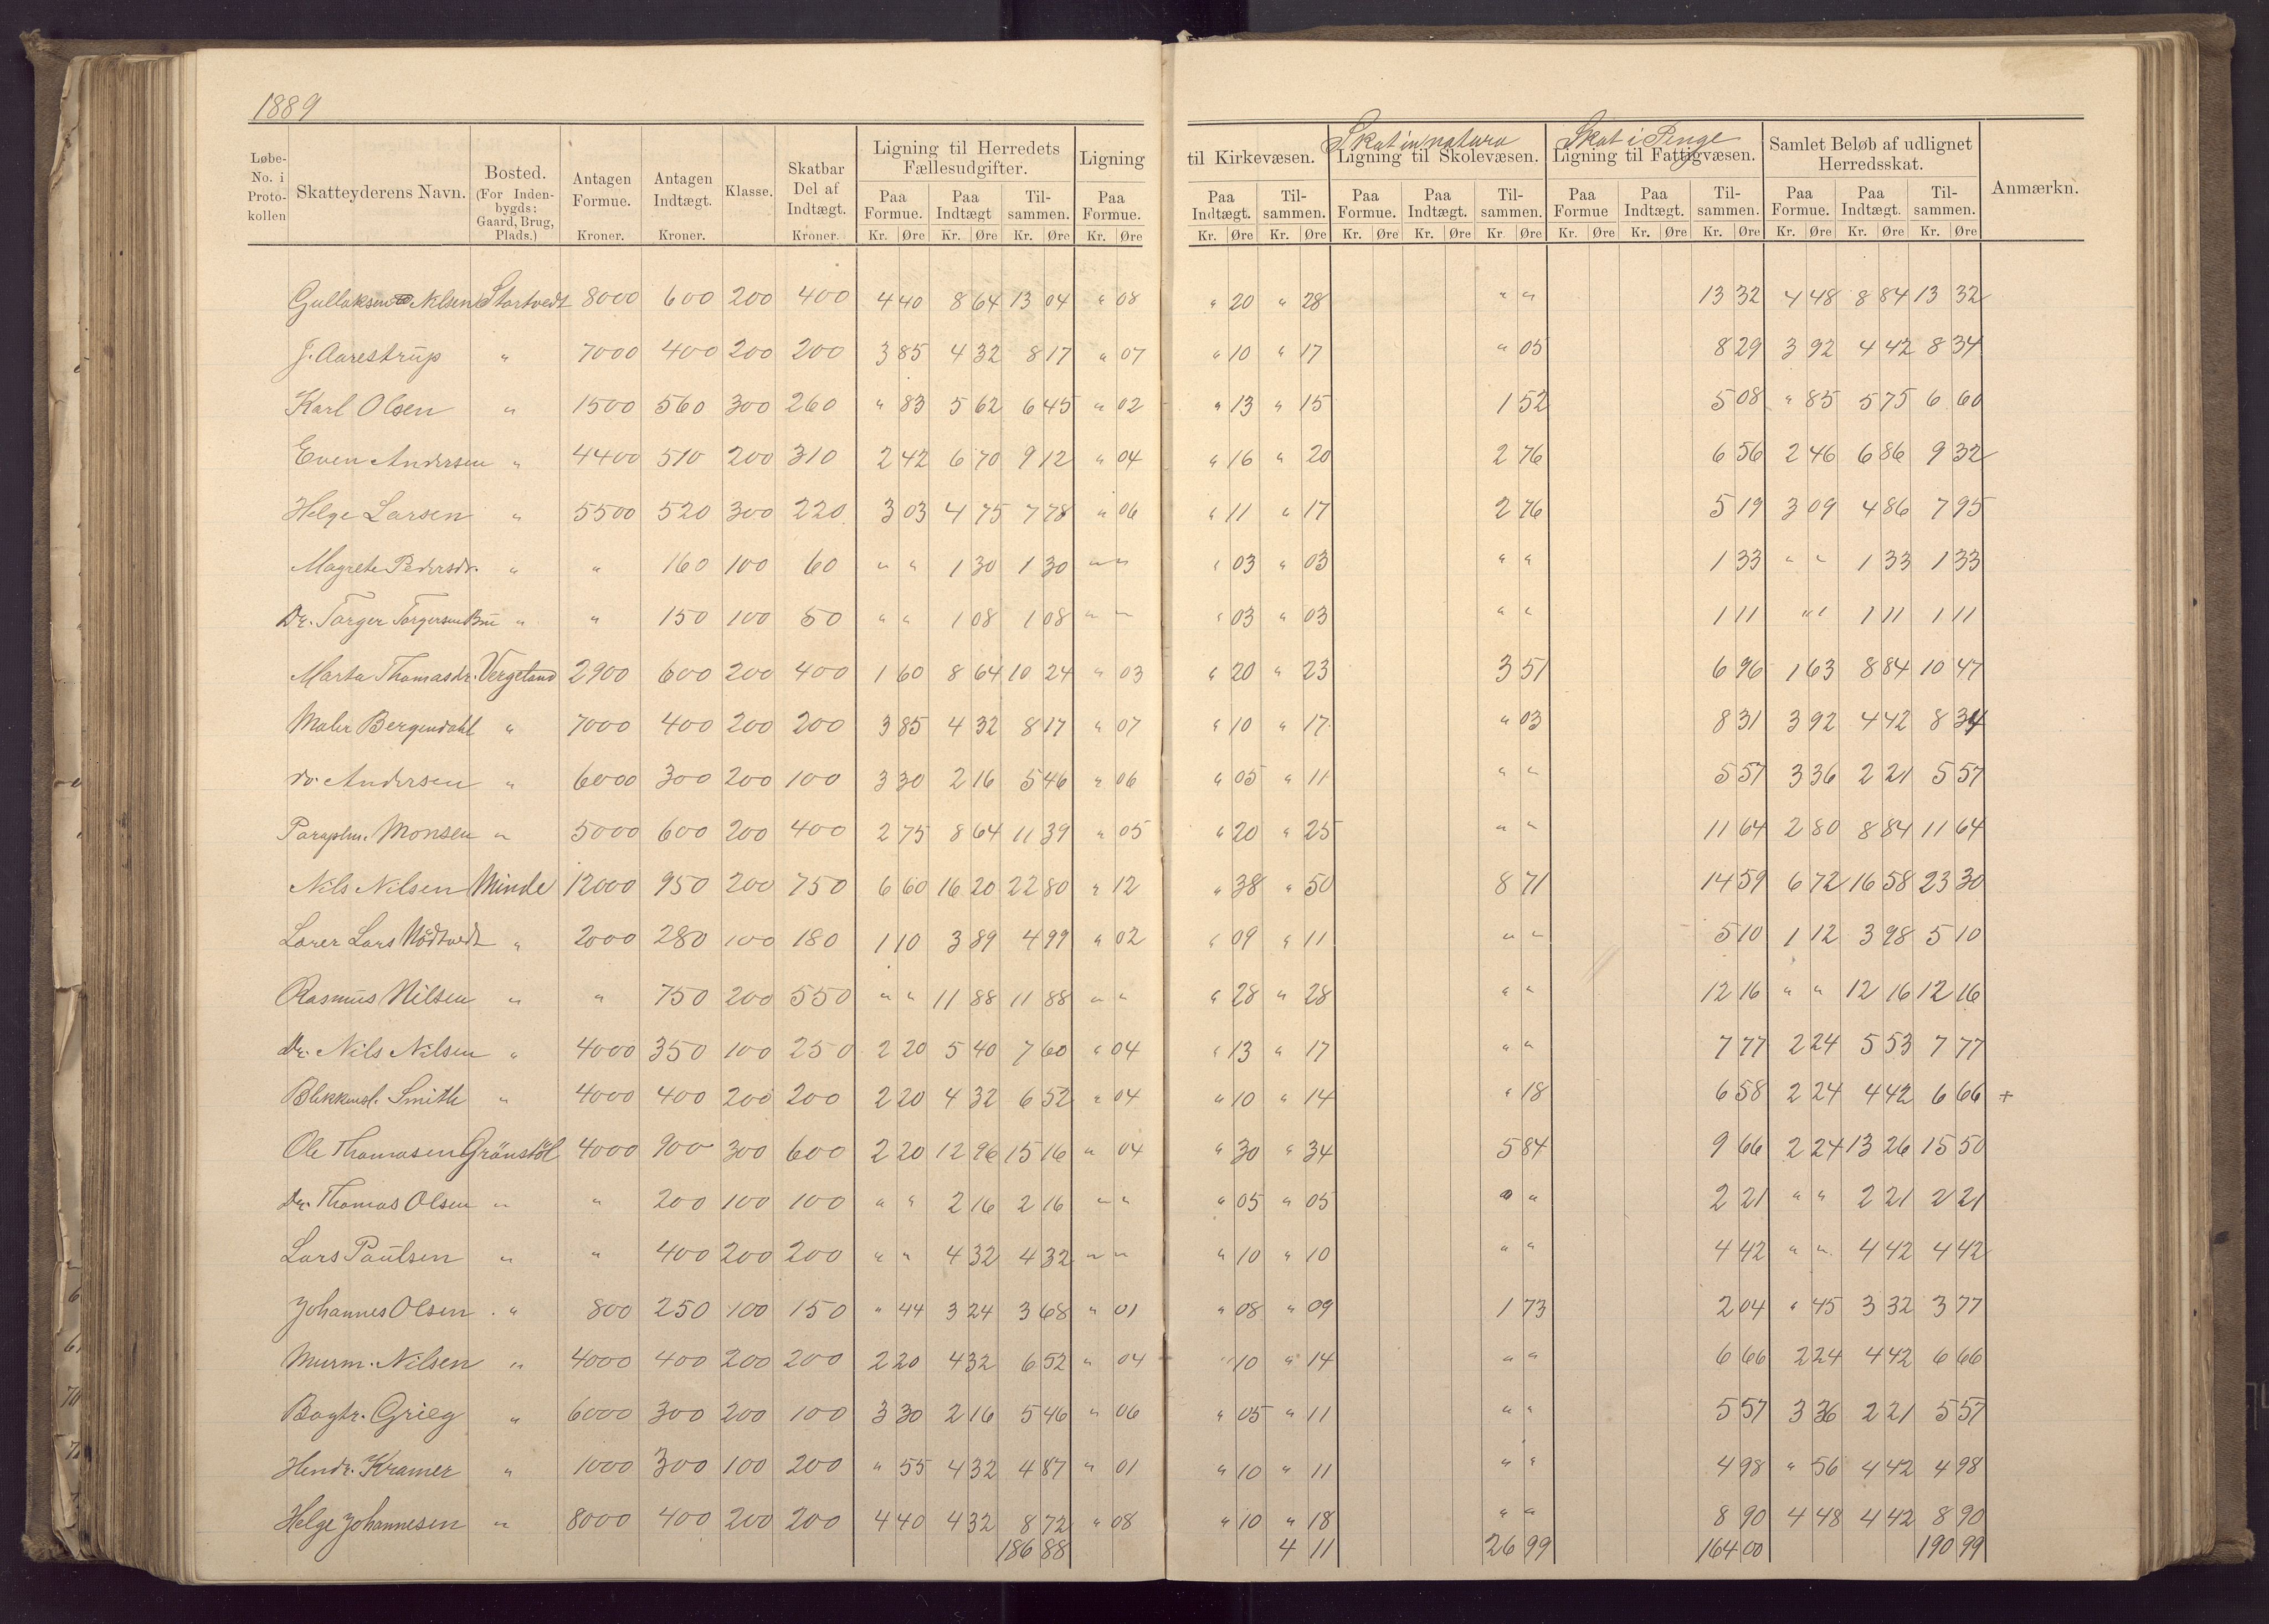 1889
Løbe-No. i Protokollen | Skatteyderens Navn. | Bosted. (For Indenbygds: Gaard, Brug, Plads.) | Antagen Formue. Kroner. | Antagen Indtægt. Kroner. | Klasse. | Skatbar Del af Indtægt. Kroner. | Ligning til Herredets Fællesudgifter. Paa Formue. Kr. Øre | Paa Indtægt Kr. Øre | Tilsammen. Kr. Øre | Ligning Paa Formue. Kr. Øre | til Kirkevæsen. Paa Indtægt. Kr. Øre | Tilsammen. Kr. Øre | Skat in natura Ligning til Skolevæsen. Paa Formue. Kr. Øre | Paa Indtægt. Kr. Øre | Tilsammen. Kr. Øre | Skat i Penge Ligning til Fattigvæsen. Paa Formue Kr. Øre | Paa Indtægt. Kr. Øre | Tilsammen. Kr. Øre | Samlet Beløb af udlignet Herredsskat. Paa Formue. Kr. Øre | Paa Indtægt. Kr. Øre | Tilsammen. Kr. Øre | Anmærkn.
Gullaksen Nilsen Stortvedt 8000 600 200 400 4 40 8 64 13 04 " 08 " 20 " 28 " " 13 32 4 48 8 84 13 32
J. Aarestrup " 7000 400 200 200 3 85 4 32 8 17 " 07 " 10 " 17 " 05 8 29 3 92 4 42 8 34
Karl Olsen " 1500 560 300 260 " 83 5 62 6 45 " 02 " 13 " 15 1 52 5 08 " 85 5 75 6 60
Even Andersen " 4400 510 200 310 2 42 6 70 9 12 " 04 " 16 " 20 2 76 6 56 2 46 6 86 9 32
Helge Larsen " 5500 520 300 220 3 03 4 75 7 78 " 06 " 11 " 17 2 76 5 19 3 09 4 86 7 95
Magrete Pedersdr. " " 160 100 60 " " 1 30 1 30 " " " 03 " 03 " " 1 33 " " 1 33 1 33
Dr. Torger Torgersen " " 150 100 50 " " 1 08 1 08 " " " 03 " 03 " " 1 11 " " 1 11 1 11
Marta Thomasdr. Vergeland 2900 600 200 400 1 60 8 64 10 24 " 03 " 20 " 23 3 51 6 96 1 63 8 84 10 47
Maler Bergendahl " 7000 400 200 200 3 85 4 32 8 17 " 07 " 10 " 17 " 03 8 31 3 92 4 42 8 34
do. Andersen " 6000 300 200 100 3 30 2 16 5 46 " 06 " 05 " 11 " " 5 57 3 36 2 21 5 57
Paraplm. Monsen " 5000 600 200 400 2 75 8 64 11 39 " 05 " 20 " 25 " " 11 64 2 80 8 84 11 64
Nils Nilsen Minde 12000 950 200 750 6 60 16 20 22 80 " 12 " 38 " 50 8 71 14 59 6 72 16 58 23 30
Lærer Lars Nödtvedt " 2000 280 100 180 1 10 3 89 4 99 " 02 " 09 " 11 " " 5 10 1 12 3 98 5 10
Rasmus Nilsen " " 750 200 550 " " 11 88 11 88 " " " 28 " 28 " " 12 16 " " 12 16 12 16
Dr. Nils Nilsen " 4000 350 100 250 2 20 5 40 7 60 " 04 " 13 " 17 " " 7 77 2 24 5 53 7 77
Blikkensl. Smith " 4000 400 200 200 2 20 4 32 6 52 " 04 " 10 " 14 " 18 6 58 2 24 4 42 6 66 +
Ole Thomasen Grönstöl 4000 900 300 600 2 20 12 96 15 16 " 04 " 30 " 34 5 84 9 66 2 24 13 26 15 50
Dr. Thomas Olsen " " 200 100 100 " " 2 16 2 16 " " " 05 " 05 " " 2 21 " " 2 21 2 21
Lars Paulsen " " 400 200 200 " " 4 32 4 32 " " " 10 " 10 " " 4 42 " " 4 42 4 42
Johannes Olsen " 800 250 100 150 " 44 3 24 3 68 " 01 " 08 " 09 1 73 2 04 " 45 3 32 3 77
Murm. Nilsen " 4000 400 200 200 2 20 4 32 6 52 " 04 " 10 " 14 " " 6 66 2 24 4 42 6 66
Bogtr. Grieg " 6000 300 200 100 3 30 2 16 5 46 " 06 " 05 " 11 " " 5 57 3 36 2 21 5 57
Hendr. Kramer " 1000 300 100 200 " 55 4 32 4 87 " 01 " 10 " 11 " " 4 98 " 56 4 42 4 98
Helge Johannesen " 8000 400 200 200 4 40 4 32 8 72 " 08 " 10 " 18 " " 8 90 4 48 4 42 8 90
186 88 4 11 26 99 164 00 190 99